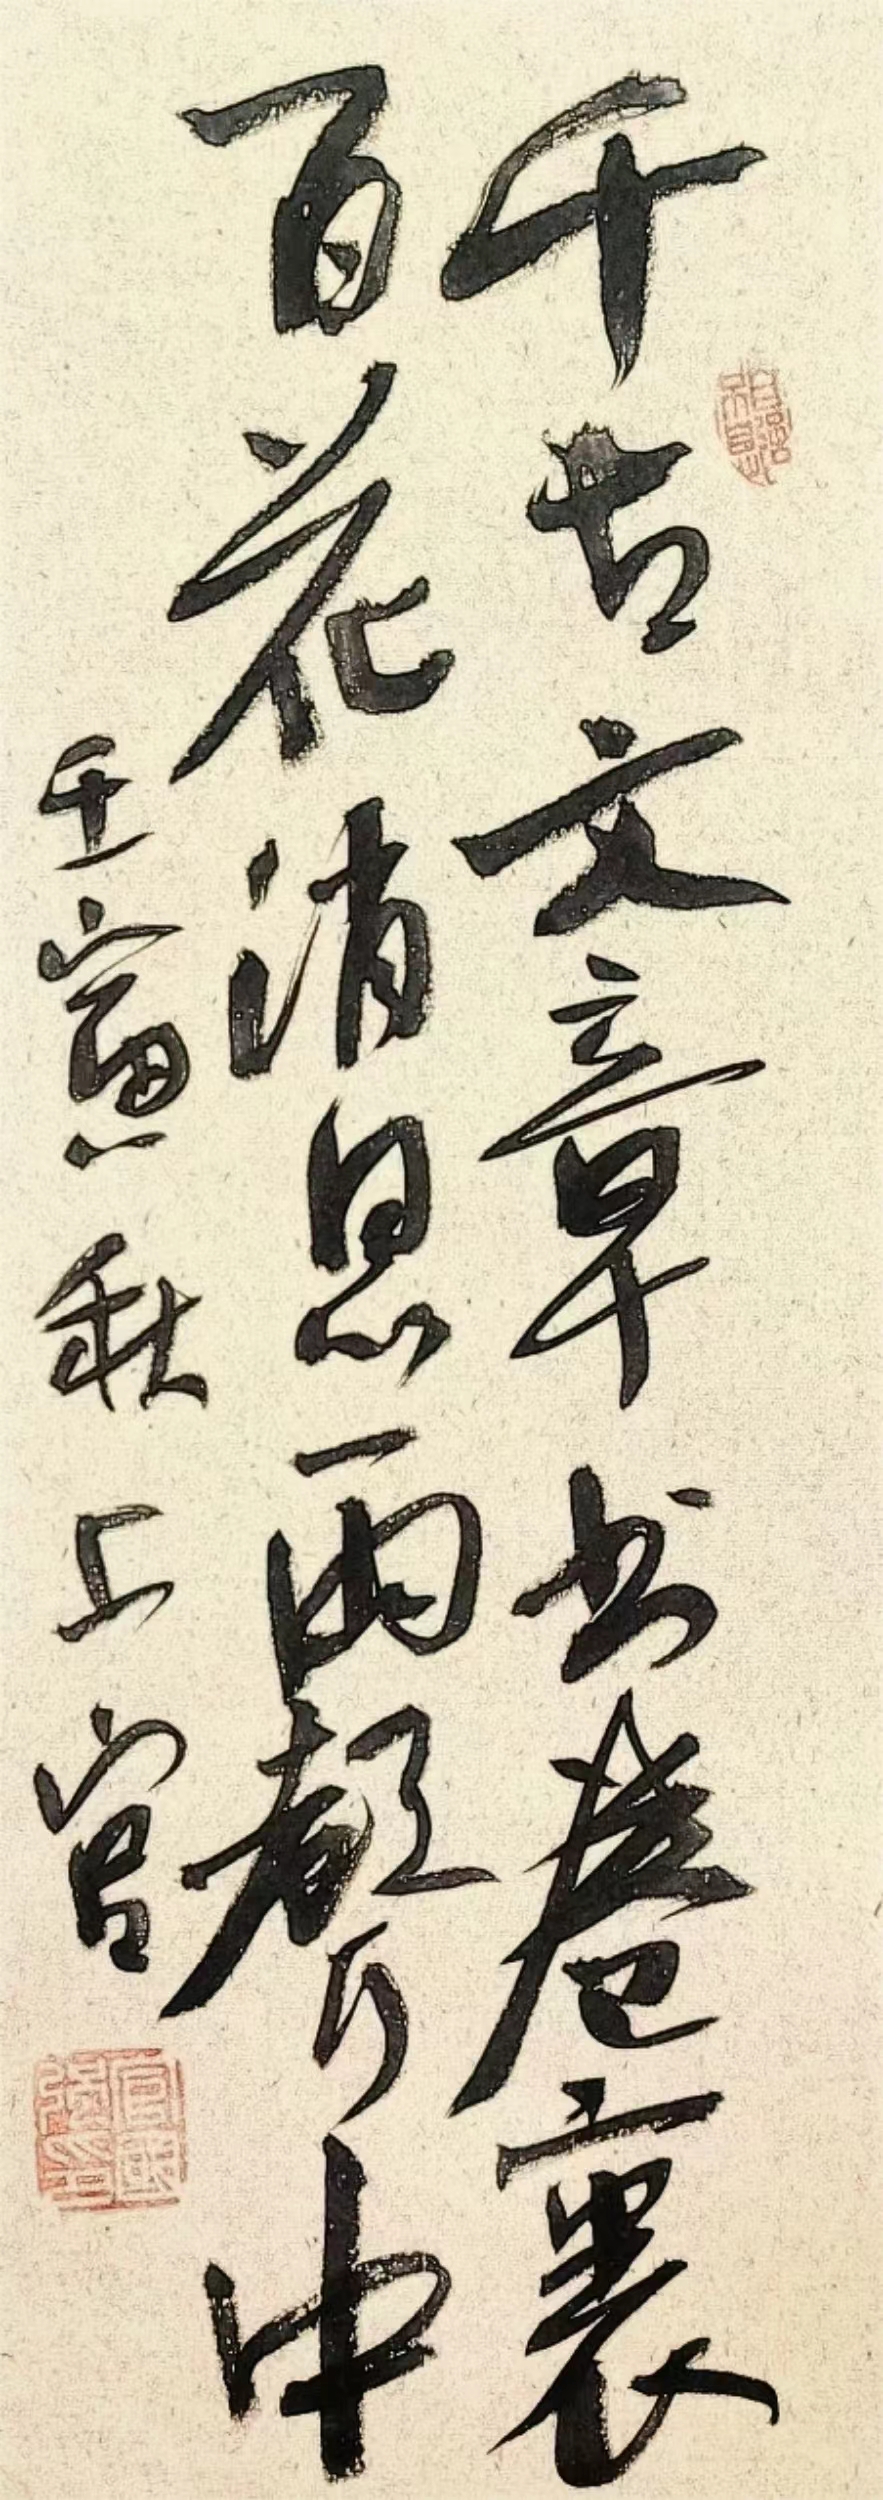 千古文章书卷裏
百花消息雨声中
壬寅秋上官